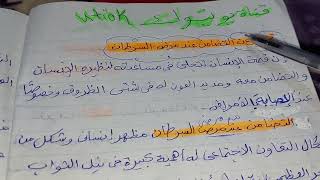 قناة يوتوك utiok
التضامن عند مرضى السرطان
قصة الإنسان تتجلى في مساعدته لنظيره الإنسان
والتضامن معه ومد يد العون له في شتى الظروف وخصوصًا
عند إصابته بالأمراض
التضامن عند مرضى السرطان مظهر إنساني وشكل من
أشكال التعاون الاجتماعي له أهمية كبيرة في نيل الثواب
العظيم